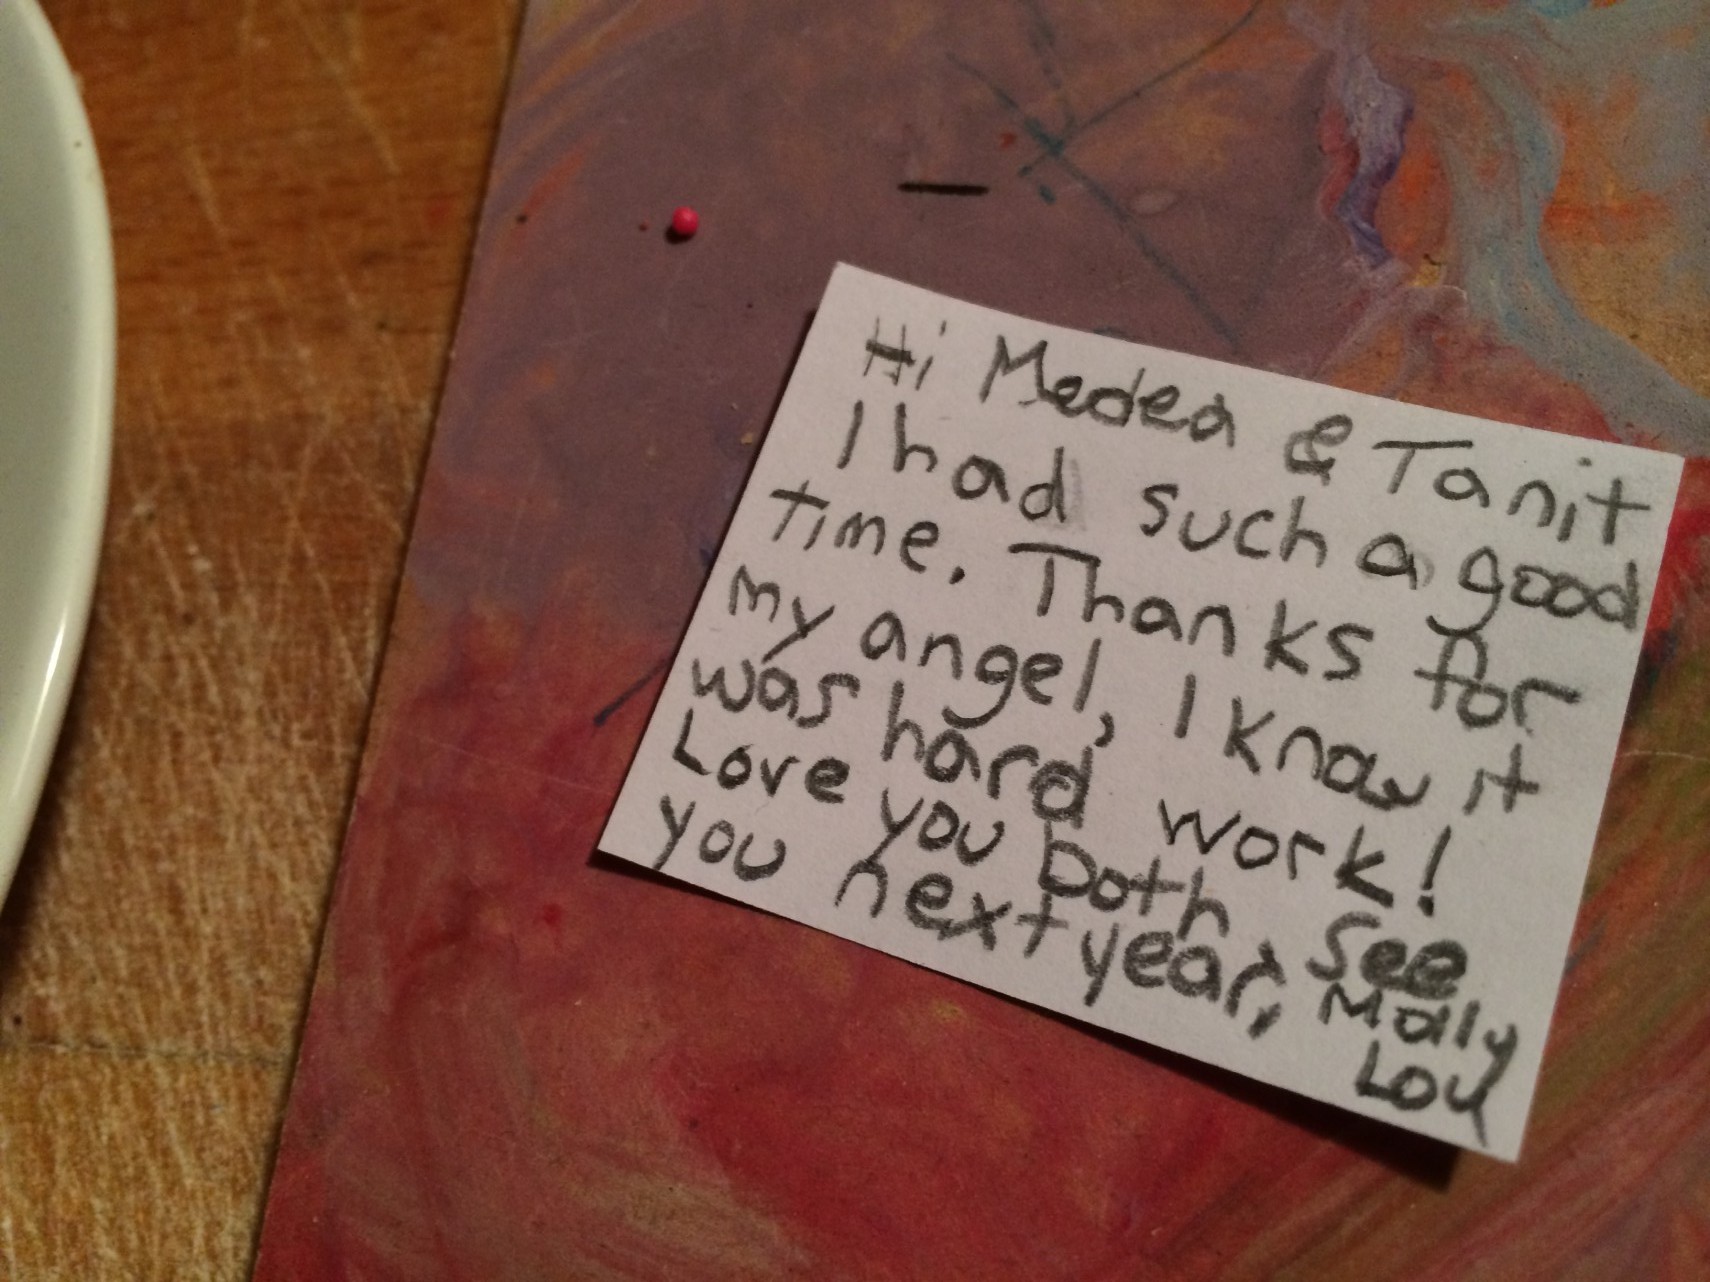 Hi Medea & Tanit
I had such a good
time. Thanks for
my angel, I know it
was hard work!
Love you both. See
you next year, Molly
Lou